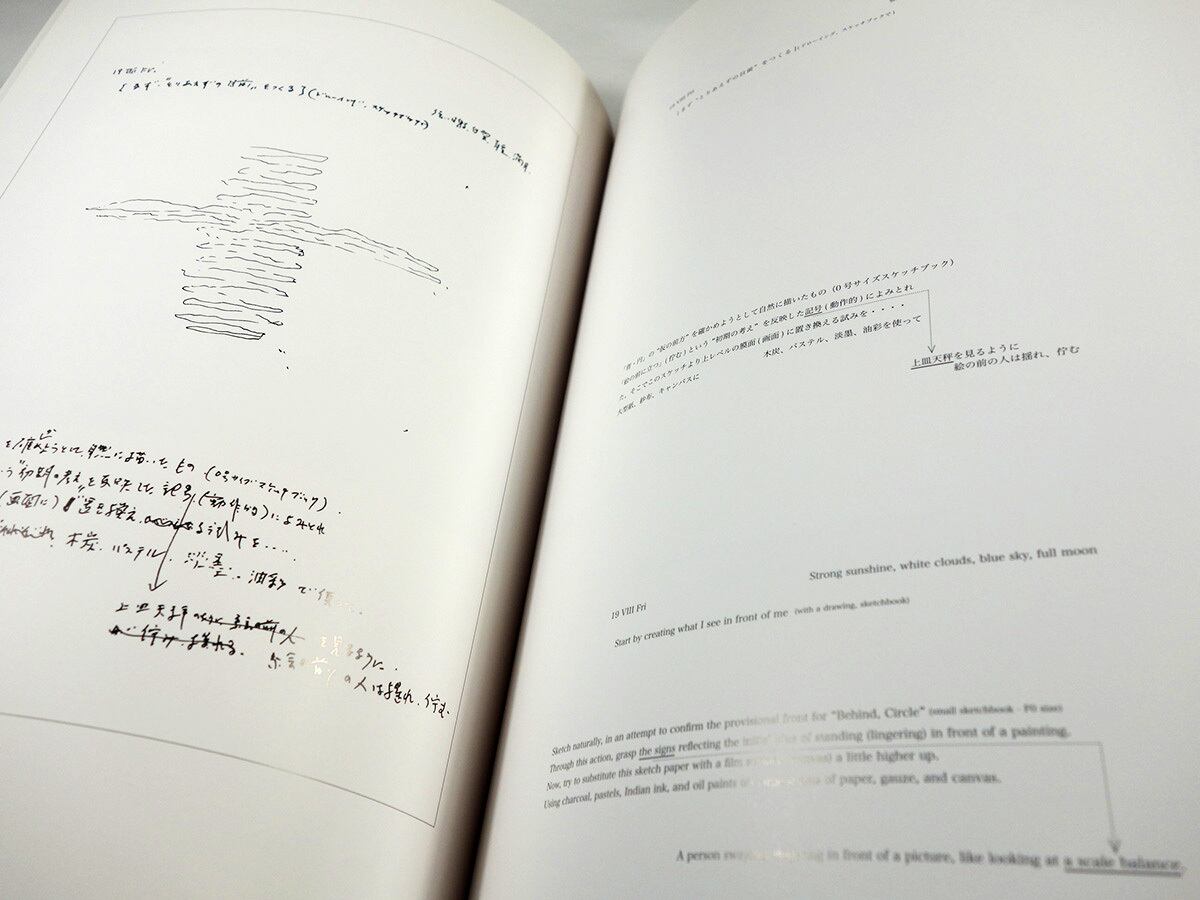 19 VIII Fri.
まず"とりあえずの目前"をつくる(ドローイング、スケッチブックで)
を確かめようとして自然に描いたもの (0号サイズスケッチブック)
いう"初期の考え"を反映した記号(動作的)によみとれ
(画面に)置き換える試みを・・・・
木炭、パステル、淡墨、油彩で使っ
上皿天秤を見るように
絵の前の人は揺れ、佇む
19 VIII Fri
まず"とりあえずの目前"をつくる(ドローイング、スケッチブックで)
「背・円」の"仮の前方"を確かめようとして自然に描いたもの (0号サイズスケッチブック)
「絵の前に立つ」(佇む)という"初期の考え"を反映した記号(動作的)によみとれ
た。そこでこのスケッチより上レベルの膜面(画面)に置き換える試みを・・・・
木炭、パステル、淡墨、油彩を使って
大型紙、紗布、キャンバスに
上皿天秤を見るように
絵の前の人は揺れ、佇む
Strong sunshine, white clouds, blue sky, full moon
19 VIII Fri
Start by creating what I see in front of me (with a drawing, sketchbook)
Sketch naturally, in an attempt to confirm the provisional front for "Behind, Circle" (small sketchbook - F0 size)
Through this action, grasp the signs reflecting the initial idea of standing (lingering) in front of a painting.
Now, try to substitute this sketch paper with a film a little higher up.
Using charcoal, pastels, Indian ink, and oil paints of paper, gauze, and canvas.
A person in front of a picture, like looking at a scale balance.